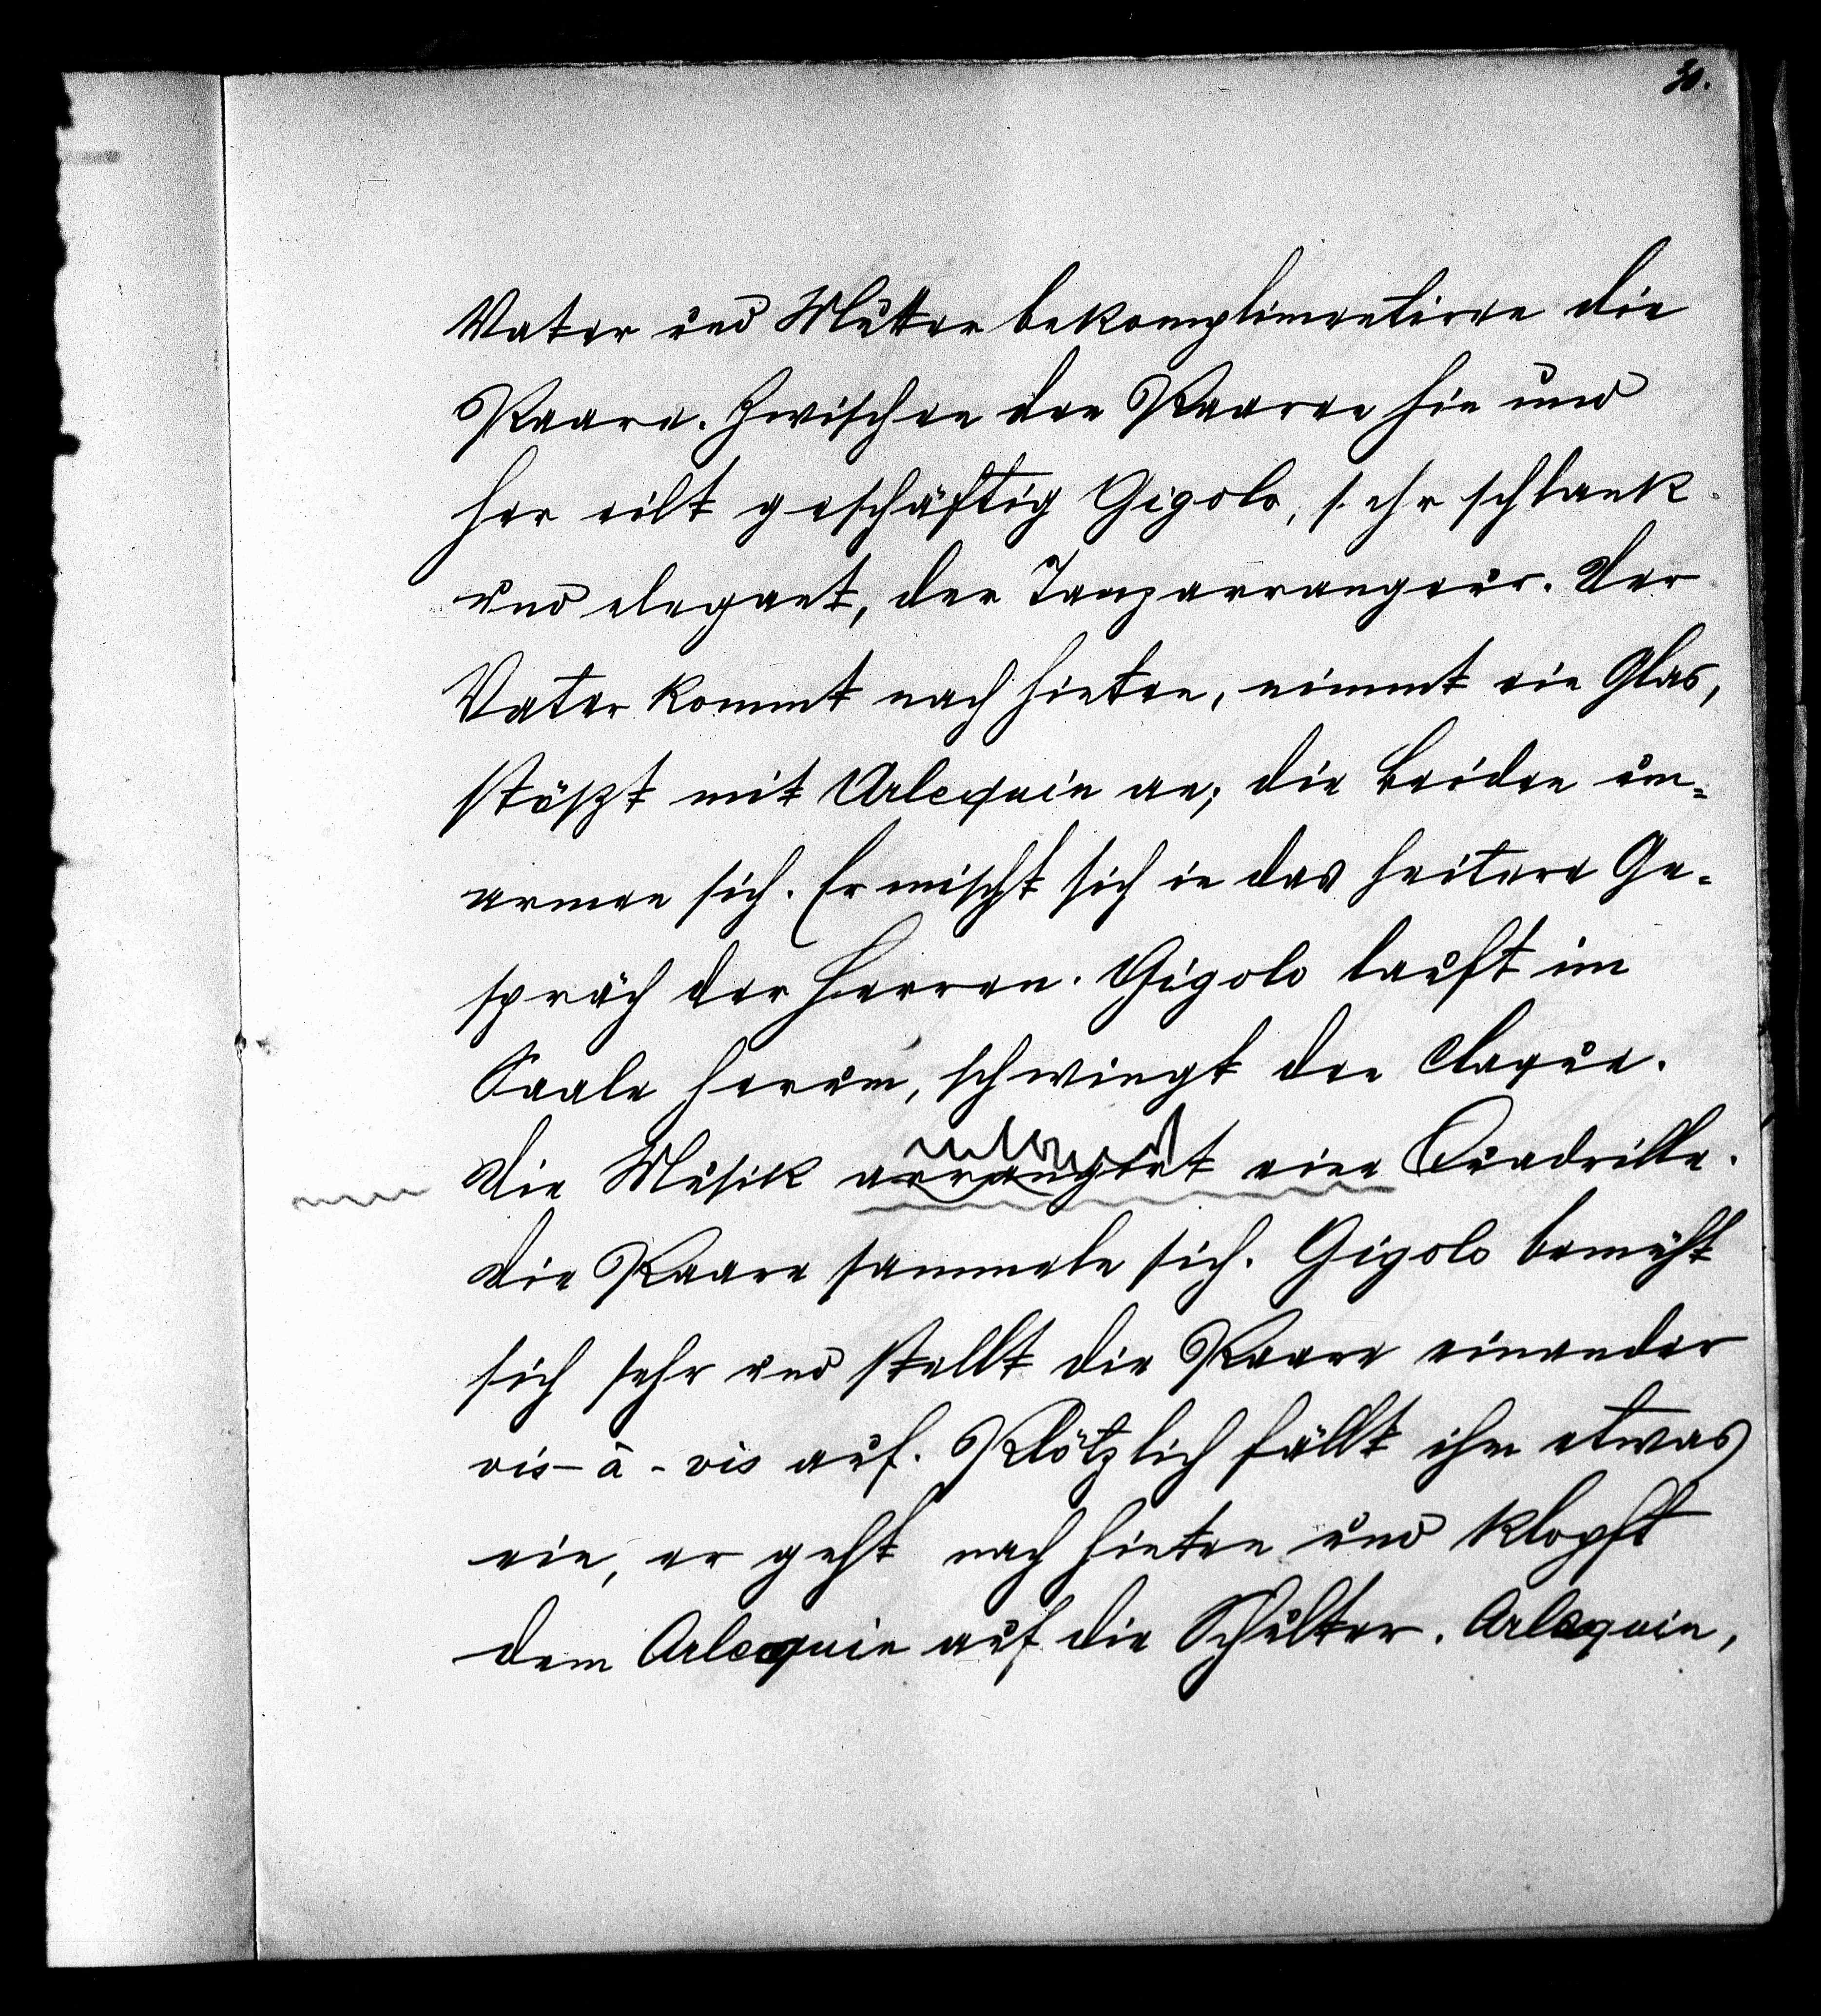 30.
Vater und Mutter bekomplimentiren die
Paare. Zwischen den Paaren hin und
her eilt geschäftig Gigolo, sehr schlank
und elegant, der Tanzarrangeur. Der
Vater kommt nach hinten, nimmt ein Glas,
stößt mit Arlequin an; die beiden um=
armen sich. Er mischt sich in das heitere Ge=
spräch der Herren. Gigolo lauft im
Saale herum, schwingt den Claque.
Die Musik arrangirt eine Quadrille.
Die Paare sammeln sich. Gigolo bemüht
sich sehr und stellt die Paare einander
vis-à-vis auf. Plötzlich fällt ihm etwas
ein, er geht nach hinten und klopft
dem Arlequin auf die Schulter. Arlequin,